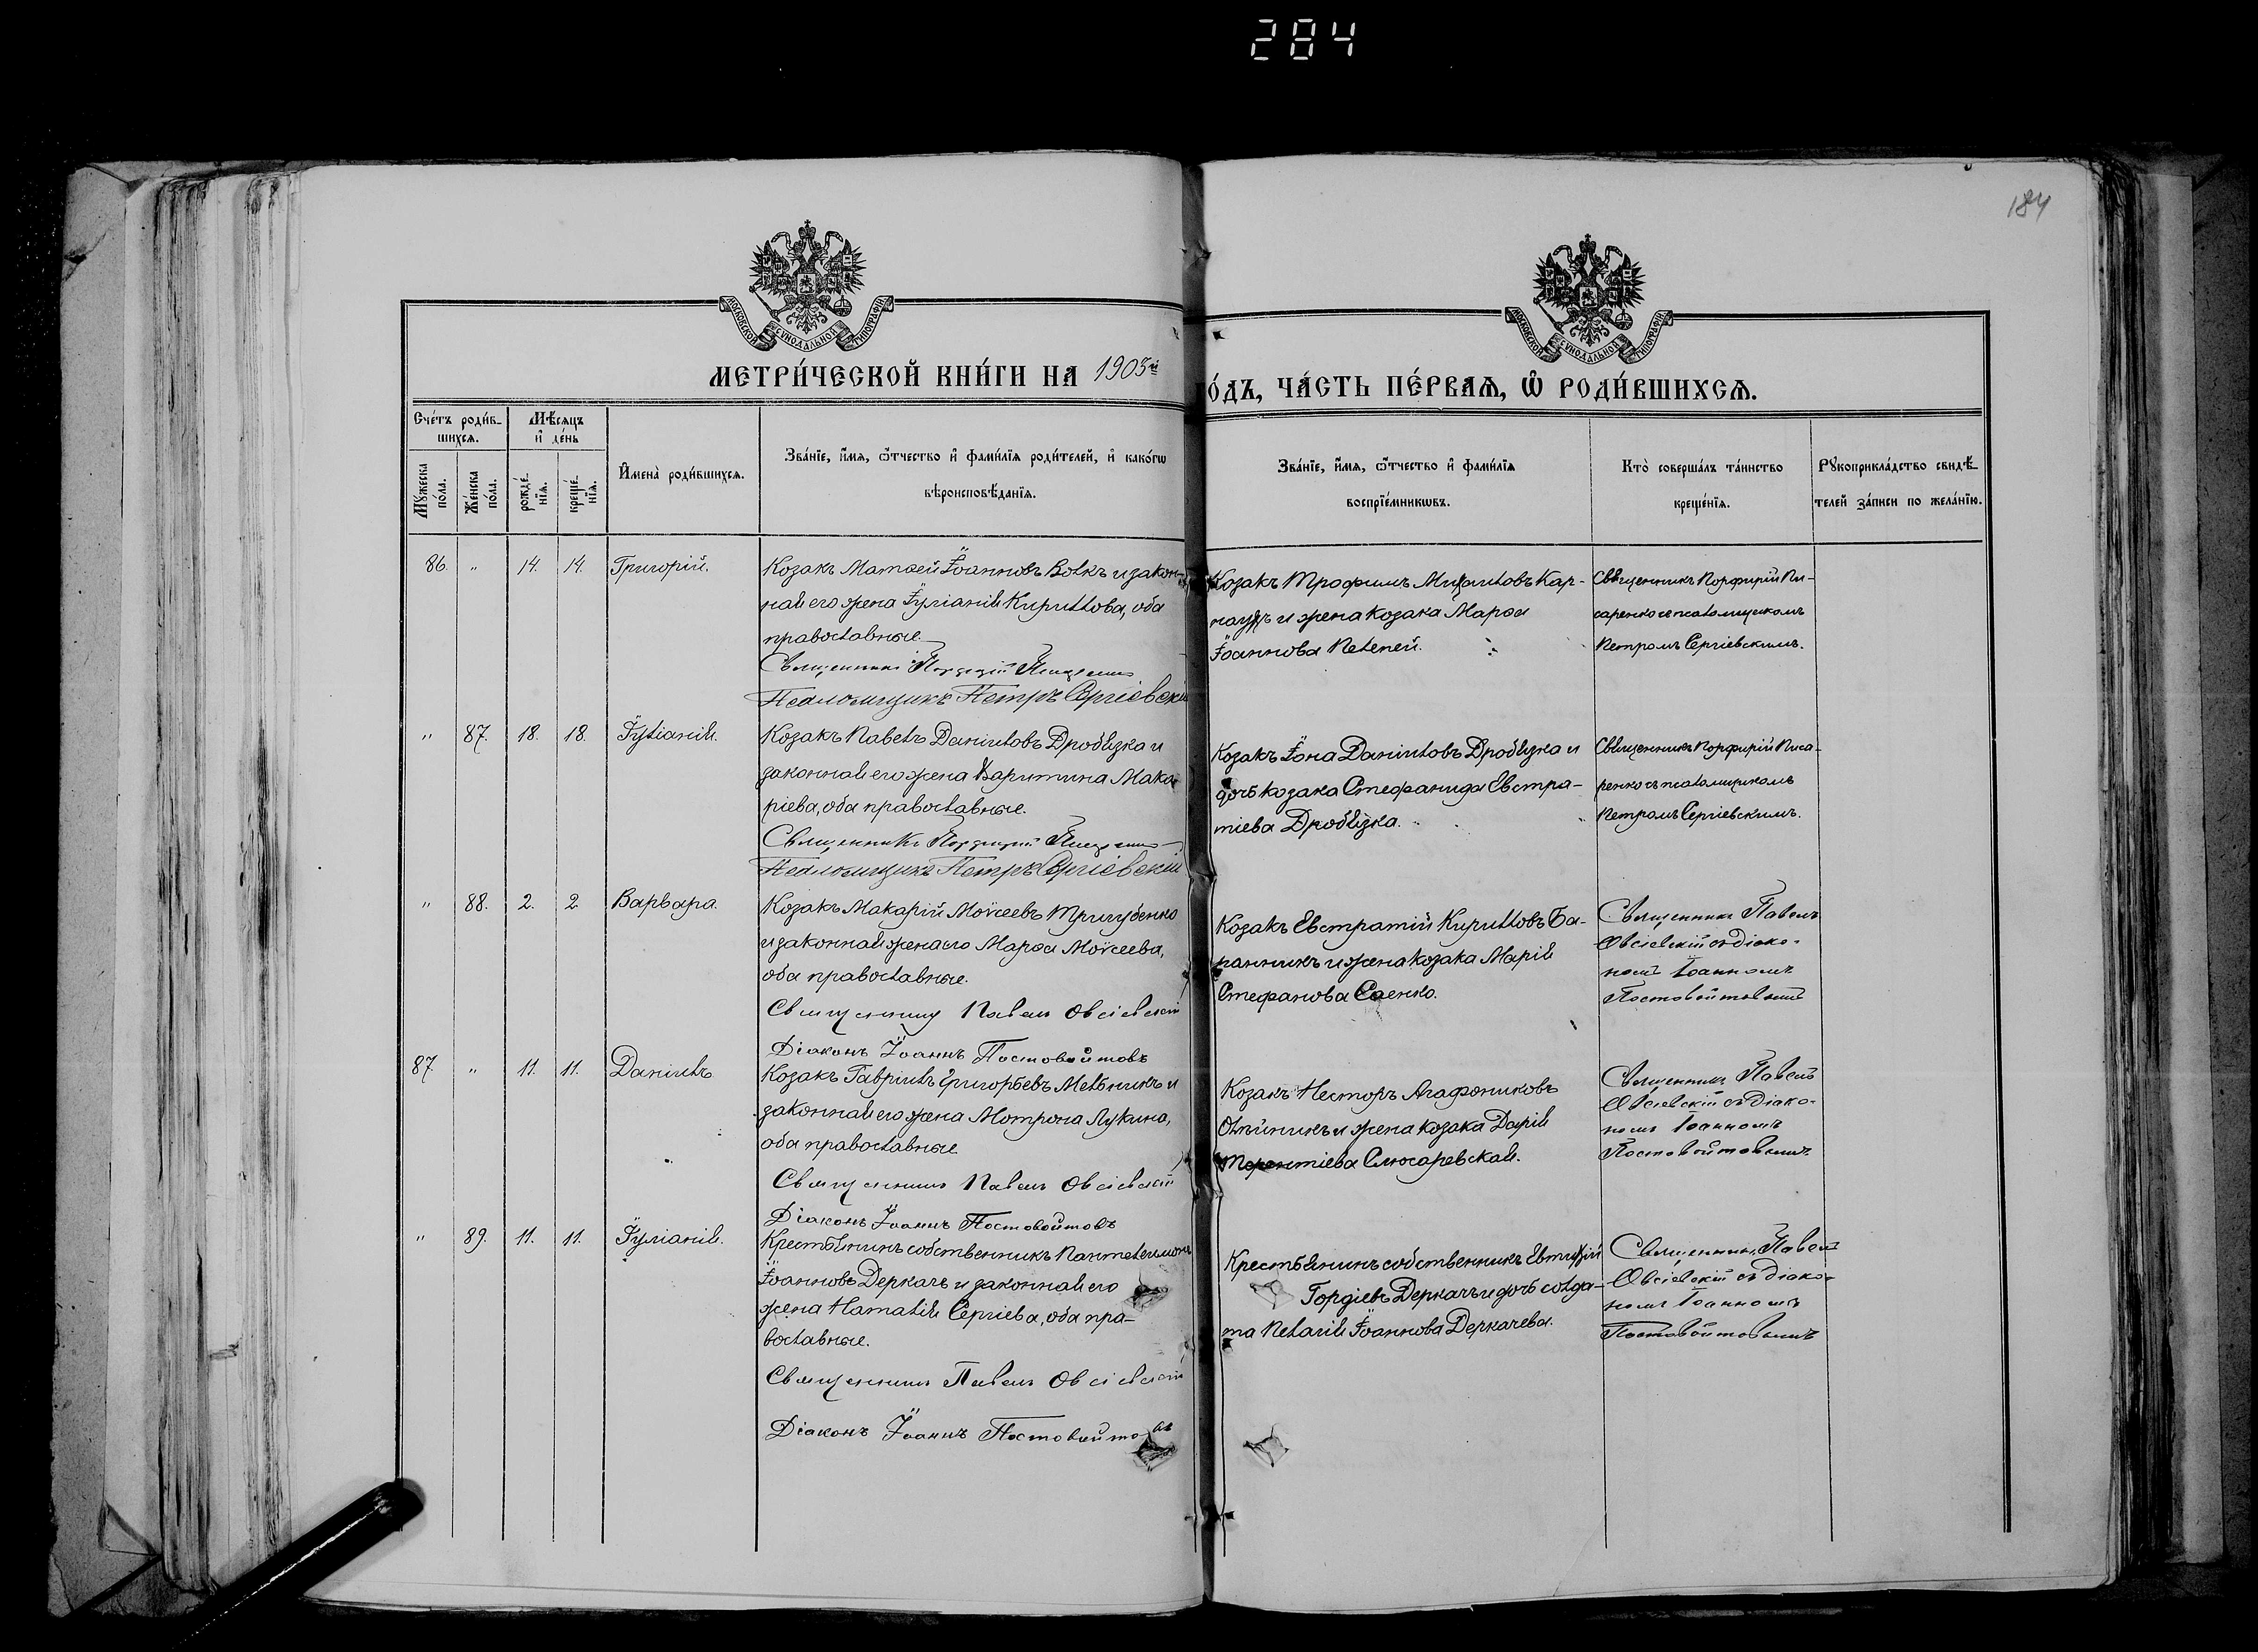 284
184
МОСКОВСКОЙ СѴНОДАЛЬНОЙ ТИПОГРАФІИ
МОСКОВСКОЙ СѴНОДАЛЬНОЙ ТИПОГРАФІИ
МЕТРИ́ЧЕСКОЙ КНИ́ГИ НА 1905й
О́ДЪ, ЧА́СТЬ ПЕ́РВАѦ, Ѿ РОДИ́ВШИХСѦ.
Сче́тъ роди́в-
шихсѧ.
Мꙋ́жеска по́ла.
Же́нска по́ла.
Мѣ́сѧцъ и҆ де́нь
рожде́-нїѧ.
креще́-нїѧ.
И҆мена̀ роди́вшихсѧ.
Зва́нїе, и҆́мѧ, ѻ҆́тчество и҆ фами́лїѧ роди́телей, и҆ како́гѡ
вѣроисповѣ́данїѧ.
Зва́нїе, и҆́мѧ, ѻ҆́тчество и҆ фами́лїѧ
воспрїе́мникѡвъ.
Кто̀ соверша́лъ та́инство
креще́нїѧ.
Рꙋкоприкла́дство свидѣ́-
телей за́писи по жела́нїю.
86. " 14. 14. Григорій.
Козакъ Матѳей Іоанновъ Волкъ и закон-
ная его жена Іуліанія Кириллова, оба
православные.
Священникъ Порфирій Писаренко
Псаломщикъ Петръ Сергіевскій
Козакъ Трофимъ Михаиловъ Кар-
наухъ и жена козака Марѳа
Іоаннова Пелепей.
Священникъ Порфирій Пи-
саренко съ псаломщикомъ
Петромъ Сергіевскимъ.
" 87. 18. 18. Іуліанія.
Козакъ Павелъ Даніиловъ Дробязка и
законная его жена Харитина Мака-
ріева, оба православные.
Священникъ Порфирій Писаренко
Псаломщикъ Петръ Сергіевскій
Козакъ Іона Даніиловъ Дробязка и
дочь козака Стефанида Евстра-
тіева Дробязка.
Священникъ Порфирій Писа-
ренко съ псаломщикомъ
Петромъ Сергіевскимъ.
" 88. 2. 2 Варвара.
Козакъ Макарій Моѵсеевъ Тригубенко
и законная жена его Марѳа Моѵсеева,
оба православные.
Священникъ Павелъ Овсіевскій
Діаконъ Іоаннъ Постовойтовъ
Козакъ Евстратій Кирилловъ Ба-
ранникъ и жена козака Марія
Стефанова Саенко.
Священникъ Павелъ
Овсіевскій съ діако-
номъ Іоанномъ
Постовойтовымъ
87. " 11. 11. Даніилъ
Козакъ Гавріилъ Григорьевъ Мельникъ и
законная его жена Мотрона Лукина,
оба православные
Священникъ Павелъ Овсіевскій
Діаконъ Іоаннъ Постовойтовъ
Козакъ Несторъ Агафониковъ
Олѣйникъ и жена козака Дарія
Терентіева Слюсаревская.
Священникъ Павелъ
Овсіевскій съ діако-
номъ Іоанномъ
Постовойтовымъ
" 89. 11. 11. Іуліанія.
Крестьянинъ собственникъ Пантелеимонъ
Іоанновъ Деркачъ и законная его
жена Наталія Сергіева, оба пра-
вославные.
Священникъ Павелъ Овсіевскій
Діаконъ Іоаннъ Постовойтовъ
Крестьянинъ собственникъ Евтихій
Гордіевъ Деркачъ и дочь солда-
та Пелагія Іоаннова Деркачева.
Священникъ Павелъ
Овсіевскій съ діако-
номъ Іоанномъ
Постовойтовымъ